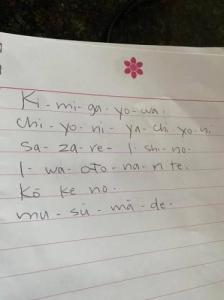 Ki - mi - ga - yo - wa -
chi - yo - ni - ya - chi - yo - ni
Sa - za - re - I - shi - no -
I - wa - oto - na - ri te -
Kō ke no -
mu - sū - mā - de -